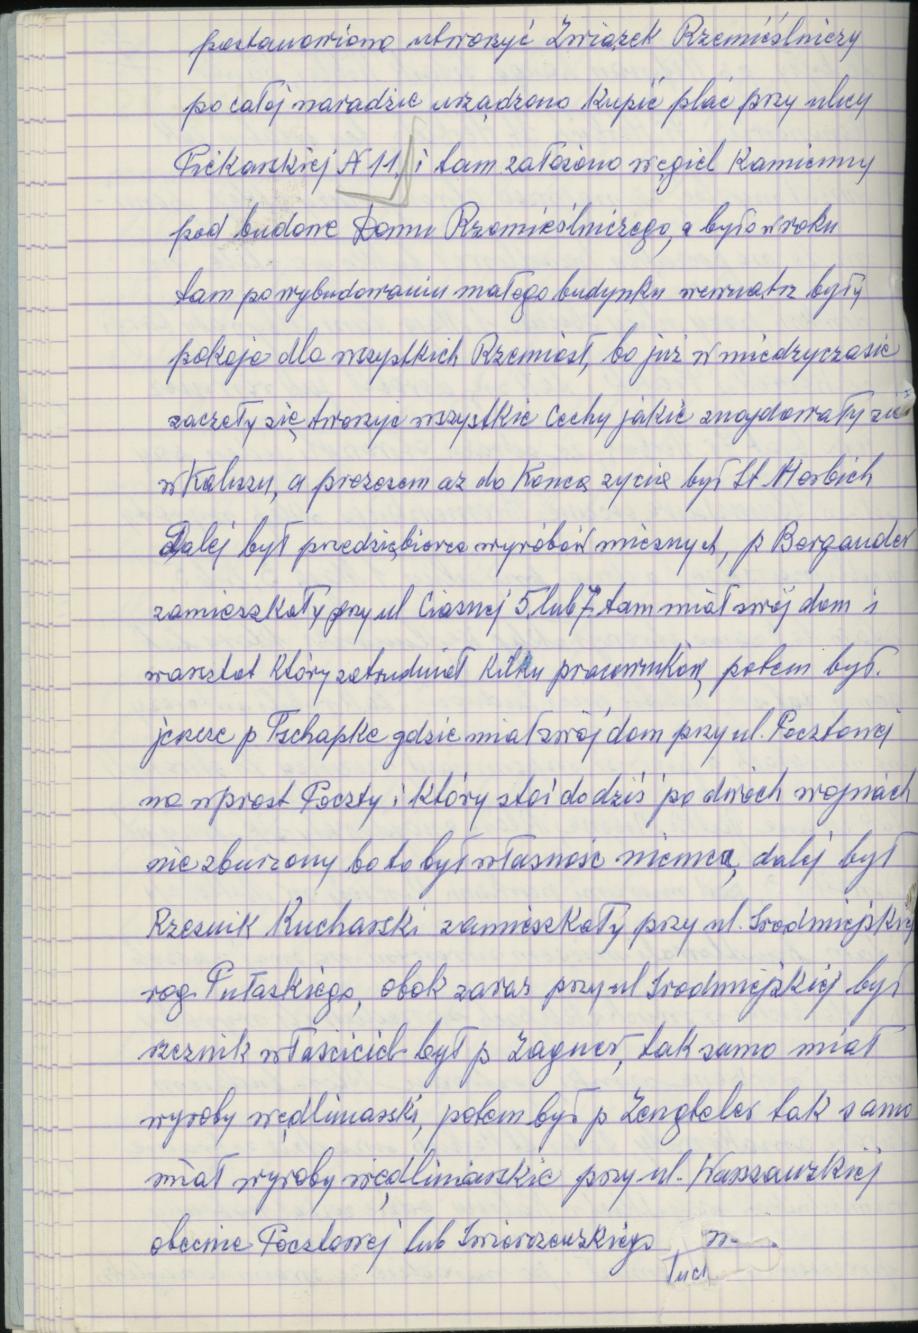 postanowiono utworzyć Związek Rzemieślniczy
po całej naradzie urządzono kupić plac przy ulicy
Piekarskiej N 11, i tam założono węgiel Kamienny
pod budowe Domu Rzemieślniczego, a było w roku
tam po wybudowaniu małego budynku wewnątrz były
pokoje dla wszystkich Rzemiosł, bo już w miedzyczasie
zaczeły się tworzyc wszystkie Cechy jakie znajdowały zie
w Kaliszu, a prezesem az do Konca zycia był St. Herbich
Dalej był przedziębiorca wyrobów miesnych, p Bergander
zamieszkały przy ul Ciasnej 5 lub 7 tam miał swój dom i
warsztat który zatrudniał kilku pracowników, potem był.
jeszcze p Tschapke gdzie miał swój dom przy ul. Pocztowej
na wprost Poczty i który stoi do dziś po dwoch wojnach
nie zburzony bo to był własnośc niemca, dalej był
Rzeznik Kucharski zamieszkały przy ul. Srodmiejskiej
rog Pułaskiego, obok zaraz przy ul Srodmiejskiej był
rzeznik właściciel był p Zagner, tak samo miał
wyroby wędliniarski, potem był p Zengteler tak samo
miał wyroby wędliniarskie przy ul. Warszauzkiej
obecnie Pocztowej lub Swierzewskiego w